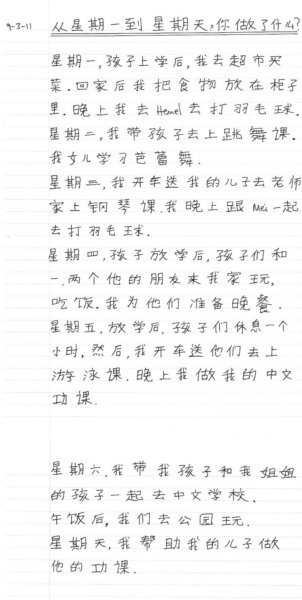 9-3-11 从星期一到星期天,你做了什么?
星期一,孩子上学后,我去超市买
菜.回家后我把食物放在柜子
里.晚上我去Hemel去打羽毛球.
星期二,我带孩子去上跳舞课.
我女儿学习芭蕾舞.
星期三,我开车送我的儿子去老师
家上钢琴课.我晚上跟Mei一起
去打羽毛球.
星期四,孩子放学后,孩子们和
一.两个他的朋友来我家玩,
吃饭.我为他们准备晚餐.
星期五.放学后.孩子们休息一个
小时.然后,我开车送他们去上
游泳课.晚上我做我的中文
功课.
星期六.我带我孩子和我姐姐
的孩子一起去中文学校.
午饭后,我们去公园玩.
星期天,我帮助我的儿子做
他的功课.